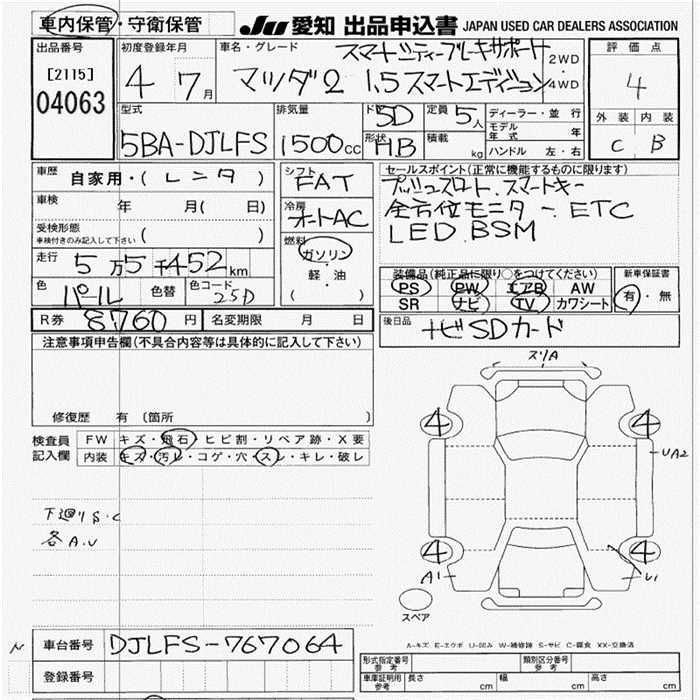 車内保管・守衛保管 JU 愛知 出品申込書 JAPAN USED CAR DEALERS ASSOCIATION
出品番号
[2115]
04063
初度登録年月
4 7月
車名・グレード
スマートシティブレーキサポート
マツダ2 1.5 スマートエディション
2WD
・
4WD
評価点
4
外装 内装
C B
型式
5BA-DJLFS
排気量
1500cc
ドア 5D
定員 5人
形状 HB
積載 kg
ディーラー・並行
モデル年式 年
ハンドル 左・右
車歴
自家用・( レンタ )
車検
年 月( 日)
受検形態
車検付きのみ記入して下さい ( )
走行
5万5千452km
色 パール 色替 色コード 25D
シフト
FAT
冷房
オートAC
燃料
ガソリン
・
軽・油
( )
セールスポイント(正常に機能するものに限ります)
プッシュスタート. スマートキー
全方位モニター. ETC
LED. BSM
装備品(純正品に限り○をつけてください)
PS PW エアB AW
SR ナビ TV カワシート
新車保証書
有・無
R券 8760円 名変期限 月 日
後日品
ナビSDカード
注意事項申告欄(不具合内容等は具体的に記入して下さい)
修復歴 有 〔箇所 〕
検査員
記入欄
FW キズ・飛石・ヒビ割・リペア跡・X要
内装 キズ・汚レ・コゲ・穴・スレ・キレ・破レ
下廻りS.C
各A.U
スリA
4 4
UA2
4 4
A1
U1
スペア
A-キズ E-エクボ U-凹み W-補修跡 S-サビ C-腐食 XX-交換済
N
車台番号 DJLFS-767064
登録番号
形式指定番号
参考
類別区分番号
参考
車庫証明用
参考
長さ cm 幅 cm 高さ cm